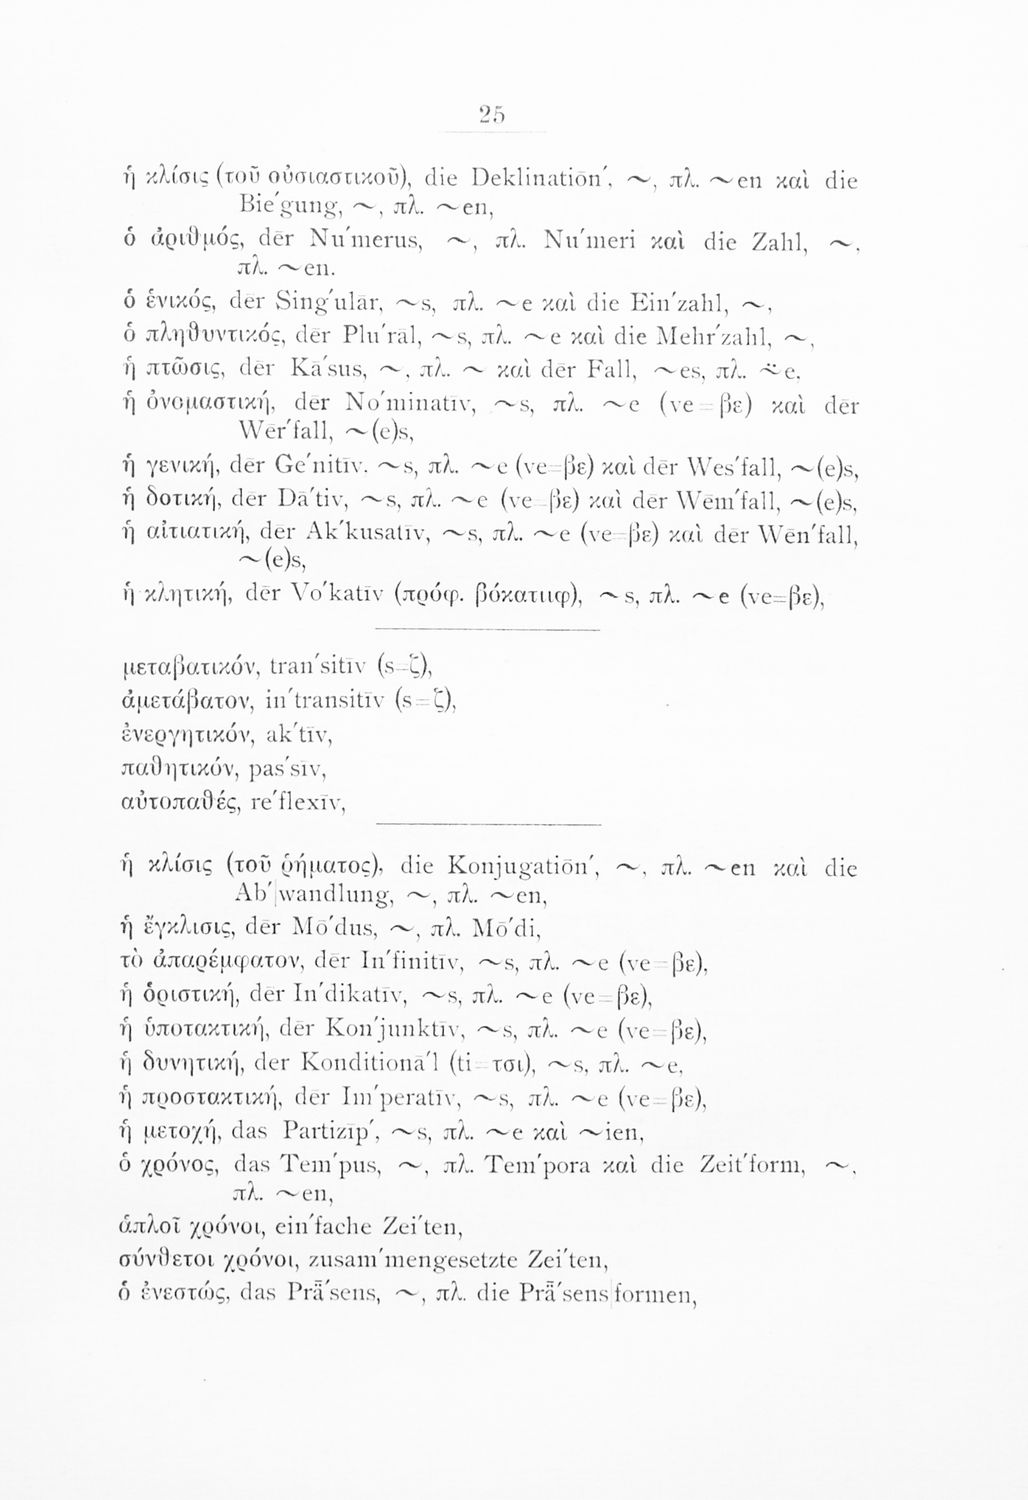 25
ἡ κλίσις (τοῦ οὐσιαστικοῦ), die Deklinatiōn', ~, πλ. ~en καὶ die
Bie'gung, ~, πλ. ~en,
ὁ ἀριθμός, dēr Nu'merus, ~, πλ. Nu'meri καὶ die Zahl, ~,
πλ. ~en.
ὁ ἑνικός, dēr Sing'ulār, ~s, πλ. ~e καὶ die Ein'zahl, ~,
ὁ πληθυντικός, dēr Plu'rāl, ~s, πλ. ~e καὶ die Mehr'zahl, ~,
ἡ πτῶσις, dēr Kā'sus, ~, πλ. ~ καὶ dēr Fall, ~es, πλ. ⸚e,
ἡ ὀνομαστική, dēr No'minatīv, ~s, πλ. ~e (ve=βε) καὶ dēr
Wēr'fall, ~(e)s,
ἡ γενική, dēr Ge'nitīv. ~s, πλ. ~e (ve=βε) καὶ dēr Wes'fall, ~(e)s,
ἡ δοτική, dēr Dā'tiv, ~s, πλ. ~e (ve=βε) καὶ dēr Wēm'fall, ~(e)s,
ἡ αἰτιατική, dēr Ak'kusatīv, ~s, πλ. ~e (ve=βε) καὶ dēr Wēn'fall,
~(e)s,
ἡ κλητική, dēr Vo'katīv (πρόφ. βόκατιιφ), ~s, πλ. ~e (ve=βε),
μεταβατικόν, tran'sitīv (s=ζ),
ἀμετάβατον, in'transitīv (s=ζ),
ἐνεργητικόν, ak'tīv,
παθητικόν, pas'sīv,
αὐτοπαθές, re'flexīv,
ἡ κλίσις (τοῦ ῥήματος), die Konjugatiōn', ~, πλ. ~en καὶ die
Ab'|wandlung, ~, πλ. ~en,
ἡ ἔγκλισις, dēr Mō'dus, ~, πλ. Mō'di,
τὸ ἀπαρέμφατον, dēr In'finitīv, ~s, πλ. ~e (ve=βε),
ἡ ὁριστική, dēr In'dikatīv, ~s, πλ. ~e (ve=βε),
ἡ ὑποτακτική, dēr Kon'junktīv, ~s, πλ. ~e (ve=βε),
ἡ δυνητική, der Konditionā'l (ti=τσι), ~s, πλ. ~e,
ἡ προστακτική, dēr Im'peratīv, ~s, πλ. ~e (ve=βε),
ἡ μετοχή, das Partizīp', ~s, πλ. ~e καὶ ~ien,
ὁ χρόνος, das Tem'pus, ~, πλ. Tem'pora καὶ die Zeit'form, ~,
πλ. ~en,
ἁπλοῖ χρόνοι, ein'fache Zei'ten,
σύνθετοι χρόνοι, zusam'mengesetzte Zei'ten,
ὁ ἐνεστώς, das Prǟ'sens, ~, πλ. die Prǟ'sens|formen,